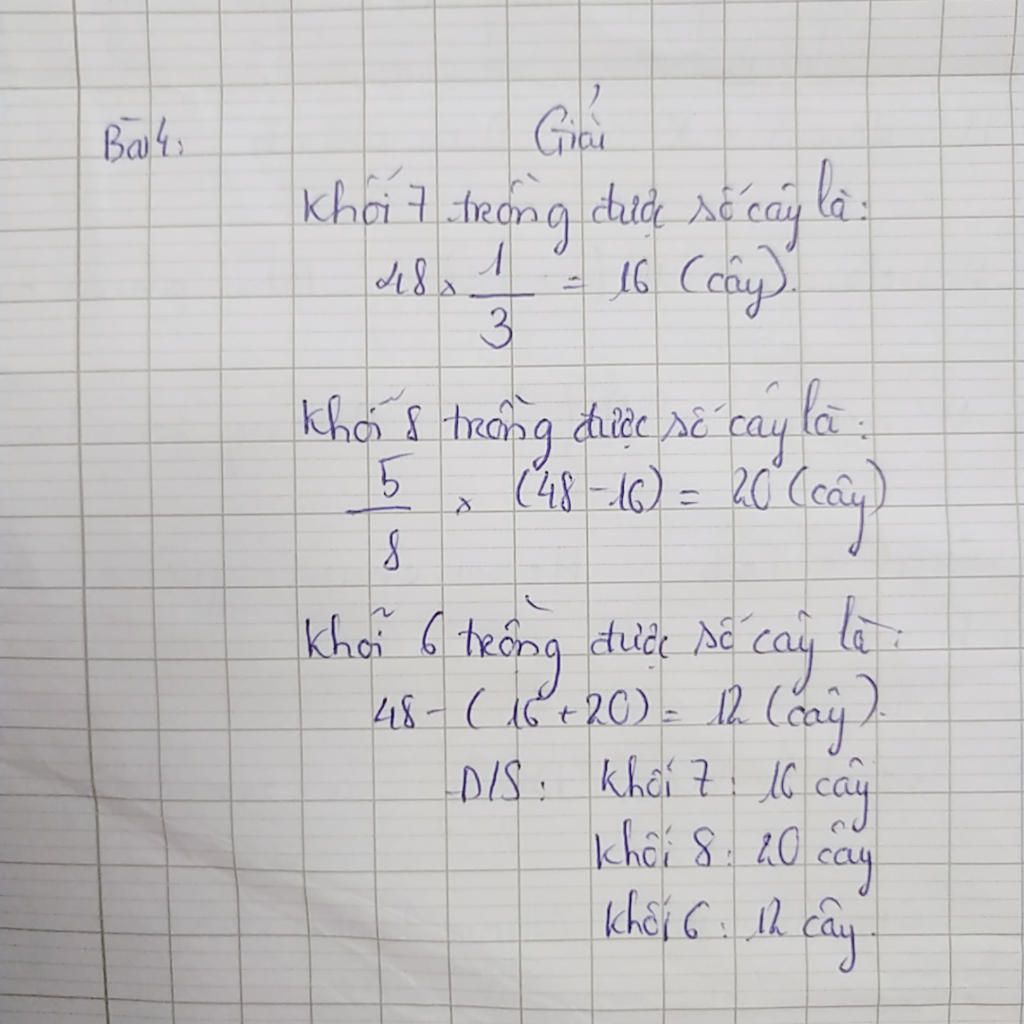 Bài 4:
Giải
Khối 7 trồng được số cây là:
48 × 1/3 = 16 (cây).
Khối 8 trồng được số cây là:
5/8 × (48 - 16) = 20 (cây)
Khối 6 trồng được số cây là:
48 - (16 + 20) = 12 (cây).
Đ/S: Khối 7: 16 cây
Khối 8: 20 cây
Khối 6: 12 cây.